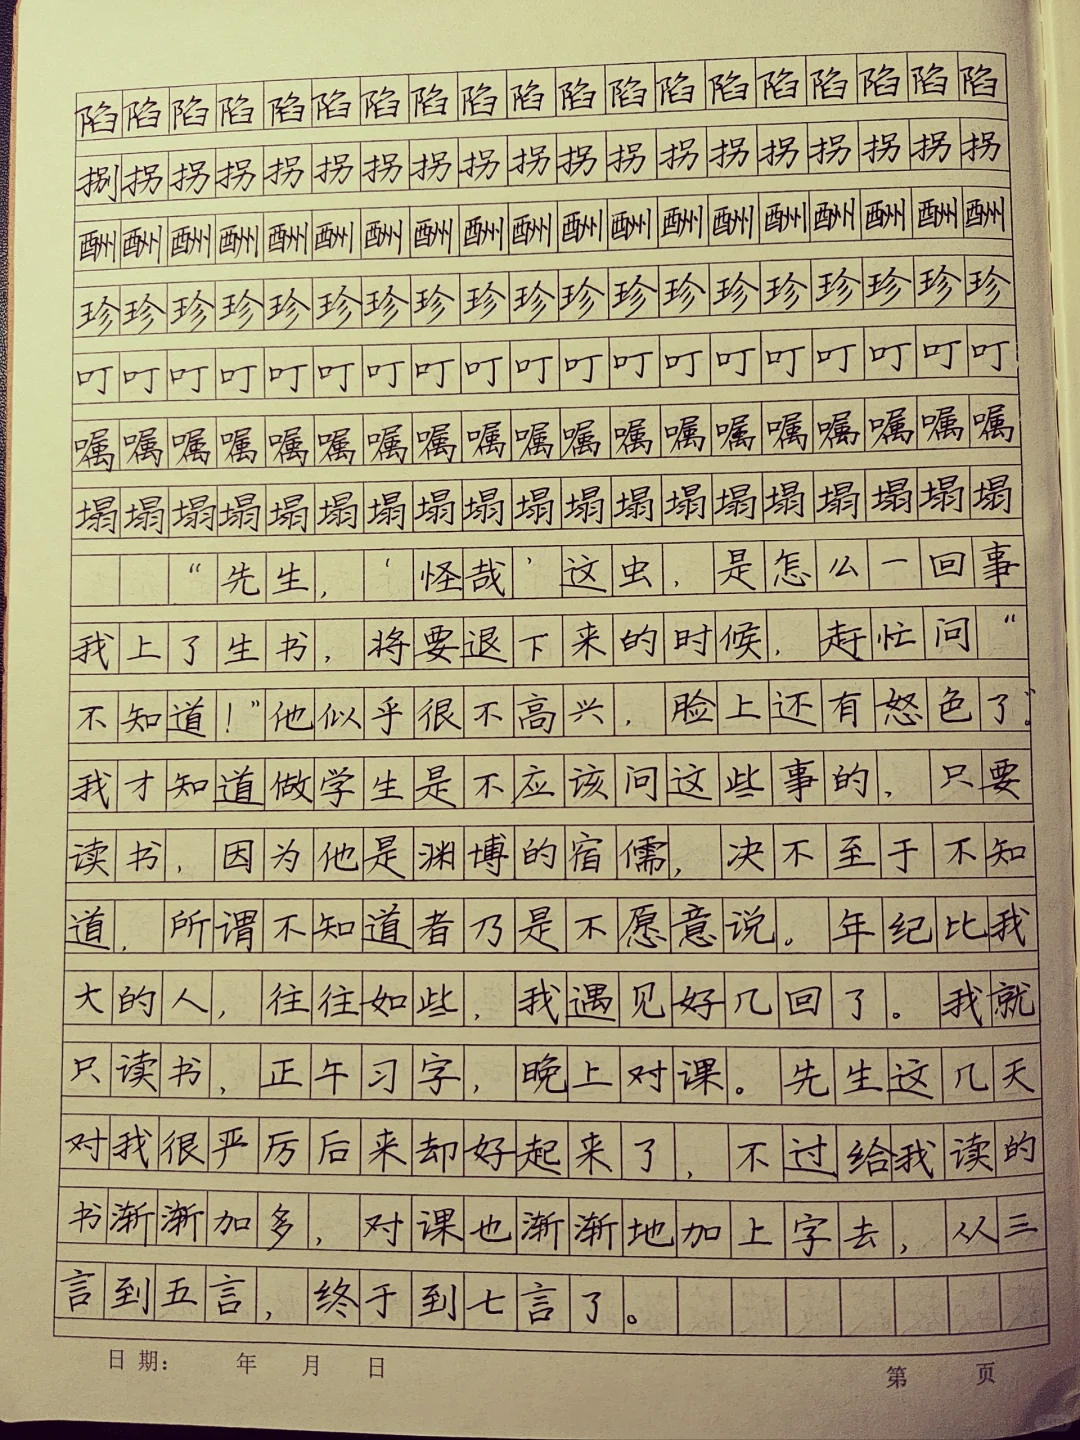 陷陷陷陷陷陷陷陷陷陷陷陷陷陷陷陷陷陷陷
捌拐拐拐拐拐拐拐拐拐拐拐拐拐拐拐拐拐拐
珍珍珍珍珍珍珍珍珍珍珍珍珍珍珍珍珍珍珍
叮叮叮叮叮叮叮叮叮叮叮叮叮叮叮叮叮叮叮
嘱嘱嘱嘱嘱嘱嘱嘱嘱嘱嘱嘱嘱嘱嘱嘱嘱嘱嘱
塌塌塌塌塌塌塌塌塌塌塌塌塌塌塌塌塌塌塌
“先生，‘怪哉’这虫，是怎么一回事
我上了生书，将要退下来的时候，赶忙问“
不知道！”他似乎很不高兴，脸上还有怒色了”。
我才知道做学生是不应该问这些事的，只要
读书，因为他是渊博的宿儒，决不至于不知
道，所谓不知道者乃是不愿意说。年纪比我
大的人，往往如些，我遇见好几回了。我就
只读书，正午习字，晚上对课。先生这几天
对我很严厉后来却好起来了，不过给我读的
书渐渐加多，对课也渐渐地加上字去，从三
言到五言，终于到七言了。
日期： 年 月 日
第 页